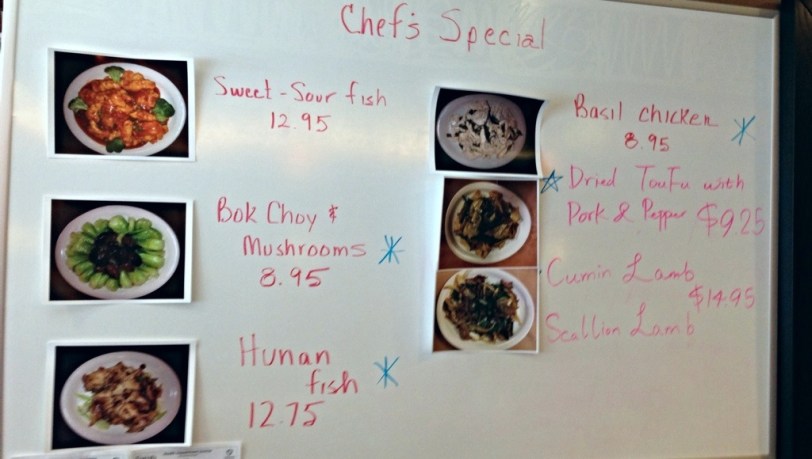 Chef's Special
Sweet-Sour fish
12.95
Bok Choy &
Mushrooms
8.95
Hunan
fish
12.75
Basil chicken
8.95
Dried TouFu with
Pork & Pepper $9.25
Cumin Lamb
$14.95
Scallion Lamb